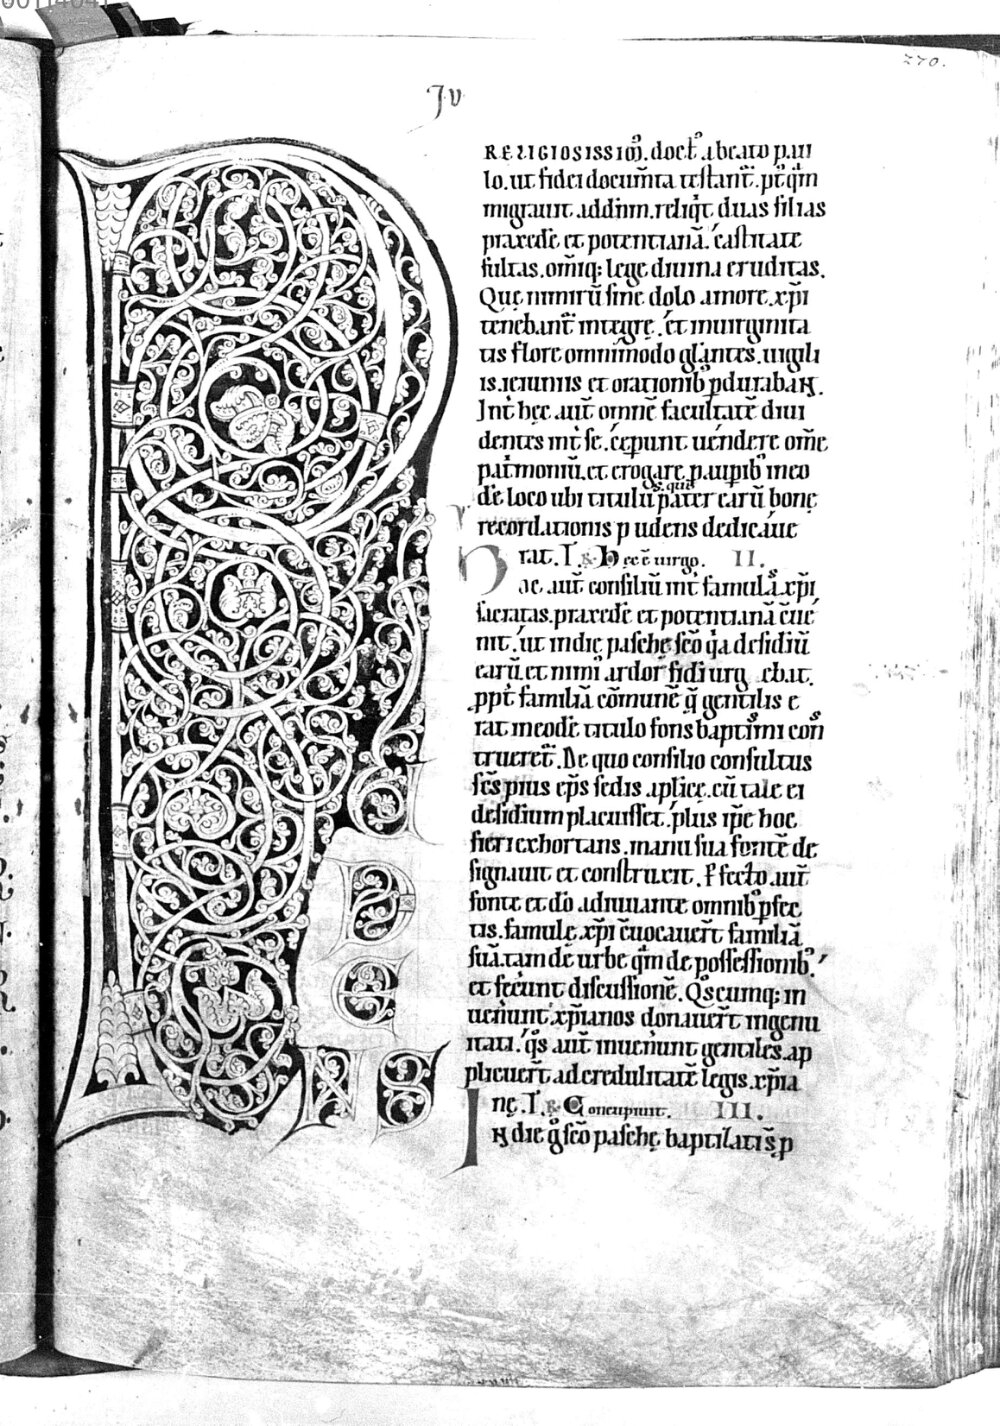 270.
JV
PUDENS
RELIGIOSISSIM᷒. doct᷒. abeato pau
lo. ut fidei docum̄ta testant̄. pt̄q̄m
migrauit. addn̄m. reliqt̄ duas filias
praxedē et potentianā. castitate
fultas. om̄iq; lege diuina eruditas.
Quę nimirū sine dolo amore. xp̄i
tenebant̄ integrę. et inuirginita
tis flore omnimodo glantes. uigili
is. ieiuniis et orationib᷒ pdurabaɴ.
Int̄ hęc aut̄ omnē facultatē diui
dentes int̄ se. cępunt uendere om̄e
pat̄moniū. et erogare pauꝑib᷒ in eo
dē loco ubi titulū pater earū bonę
s. que
recordationis pudens dedicaue
rat. L. Hec ē uirgo. II.
Hae aut̄ consiliū int̄ famulas xp̄i
sacratas. praxedē et potentianā cuē
nit. ut in die paschę sc̄o qa desidiū
earū et nimi᷒ ardor fidi urgebat.
ppt̄ familiā cōmunē q̄ gentilis e
rat in eodē titulo fons baptismi con
trueret̄. De quo consilio consultus
sc̄s pius ep̄s sedis aplicę. cū tale ei
desidium placuisset. plus ip̄e hoc
fieri exhortans. manu sua fontē de
signauit et construxit. Pfecto aut̄
fonte et dō adiuuante omnib᷒ pfec
tis. famulę xp̄i cuocauer̄t familiā
suā. tam de urbe q̄m de possessionib᷒.
et fecunt discussionē. Qscumq; in
uenunt xp̄ianos donauer̄t ingenu
itati. q̄s aut̄ inuenunt gentiles. ap
plicuer̄t ad credulitatē legis xp̄ia
nę. L. Concupiuit. III.
IN die g̊ sc̄o paschę baptizatis p